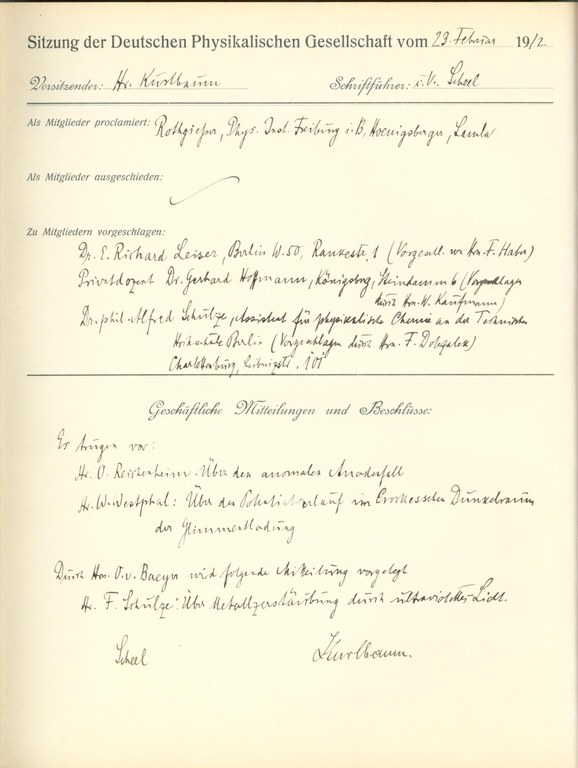 Sitzung der Deutschen Physikalischen Gesellschaft vom 23. Februar 1912
Vorsitzender: Hr. Kurlbaum Schriftführer: i.V. Scheel
Als Mitglieder proclamiert: Rothgiesser, Phys. Inst. Freiburg i. B, Hoenigsberger,
Als Mitglieder ausgeschieden:
Zu Mitgliedern vorgeschlagen:
Dr. E. Richard Leiser, Berlin W. 50, Rankestr. 1 (Vorgeschl. von Hrn. F. Haber)
Privatdozent Dr. Gerhard Hoffmann, Königsberg, Steindamm 6 (Vorgeschlagen
durch Hrn. W. Kaufmann)
Dr. phil. Alfred Schulze, Assistent für physikalische Chemie an der Technischen
Hochschule Berlin (Vorgeschlagen durch Hrn. F. Dolezalek)
Charlottenburg, Leibnizstr. 101
Geschäftliche Mitteilungen und Beschlüsse:
Es trugen vor:
Hr. O. Reichenheim: Über den anomalen Anodenfall
Hr. W. Westphal: Über den Potentialverlauf im Crookesschen Dunkelraum
der Glimmentladung
Durch Hrn. O. v. Baeyer wird folgende Mitteilung vorgelegt
Hr. F. Schulze: Über Metallzerstäubung durch ultraviolettes Licht.
Scheel Kurlbaum.